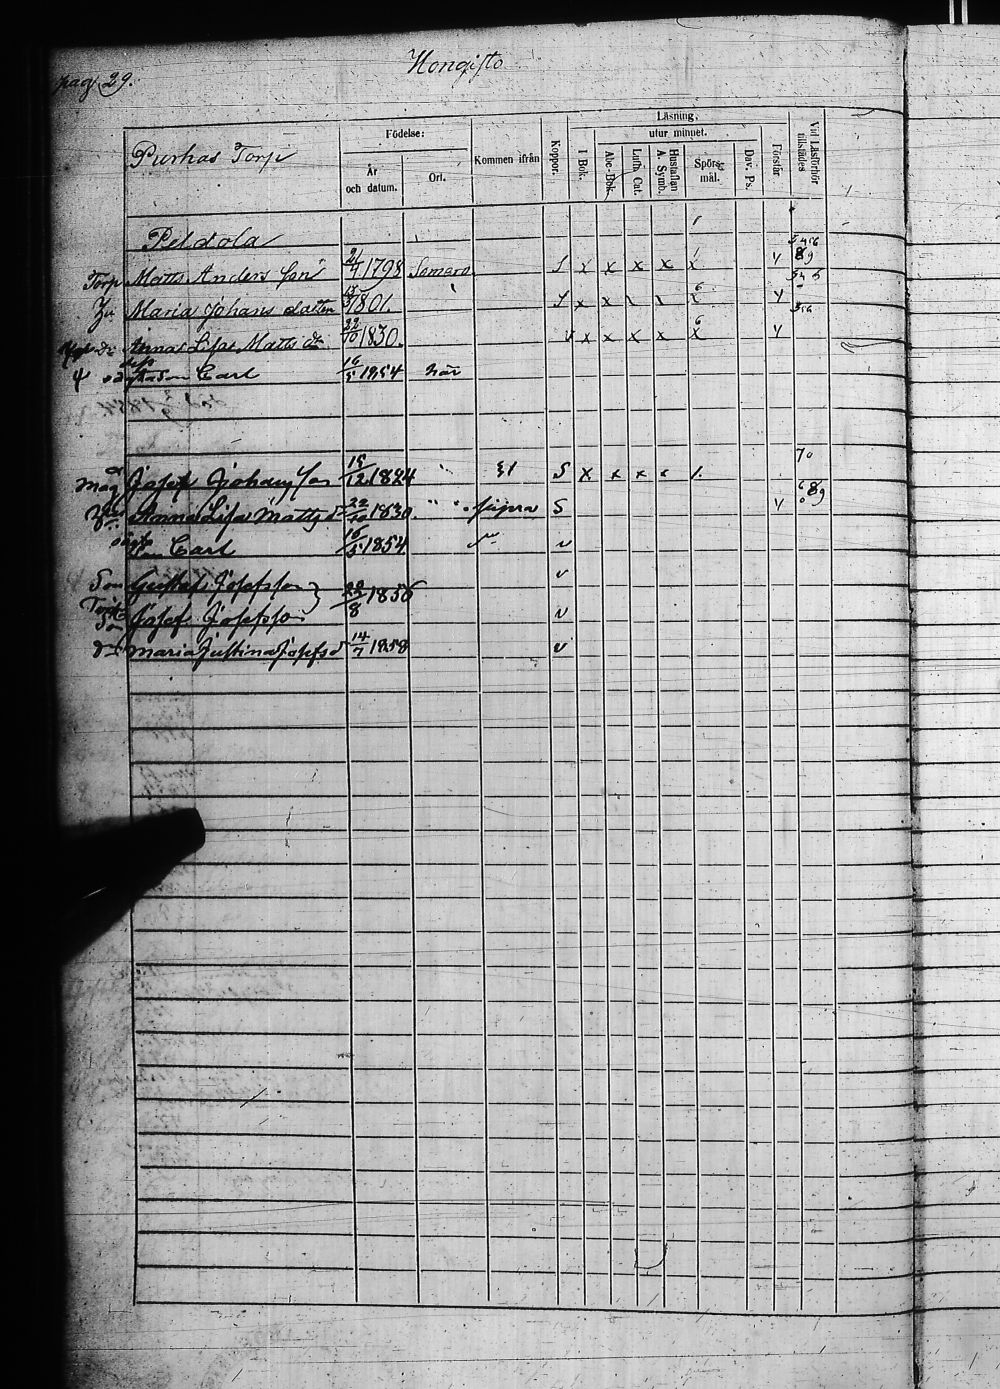 pag 29.
Hongisto
Purhas Torp
Födelse:
År och datum.
Ort.
Kommen ifrån
Koppor.
Läsning,
I Bok.
utur minnet.
Abc-Bok.
Luth. Cat.
Hustaflan A. Symb.
Spörsmål.
Dav. Ps.
Förstår
Vid Läsförhör tillstädes
Peldola
Torp Matts Anders Son 21/4 1798 Somero S x x x x x v
Maria Johans dotter 1801. S x x v
Annas Lisa Matts dr 22/10 1830. v x x x x x v
son Carl 16/5 1854 här
Mag Josef Johansson 15/12 1824 S x x x 70
Anna Lisa Mattsd 22/10 1830 supra S v
son Carl 16/5 1854 v
Son Gustaf Josefsson v
22/8 1856
Son Josef Josefsson v
dr Maria Justina Josefsd 14/7 1858 v